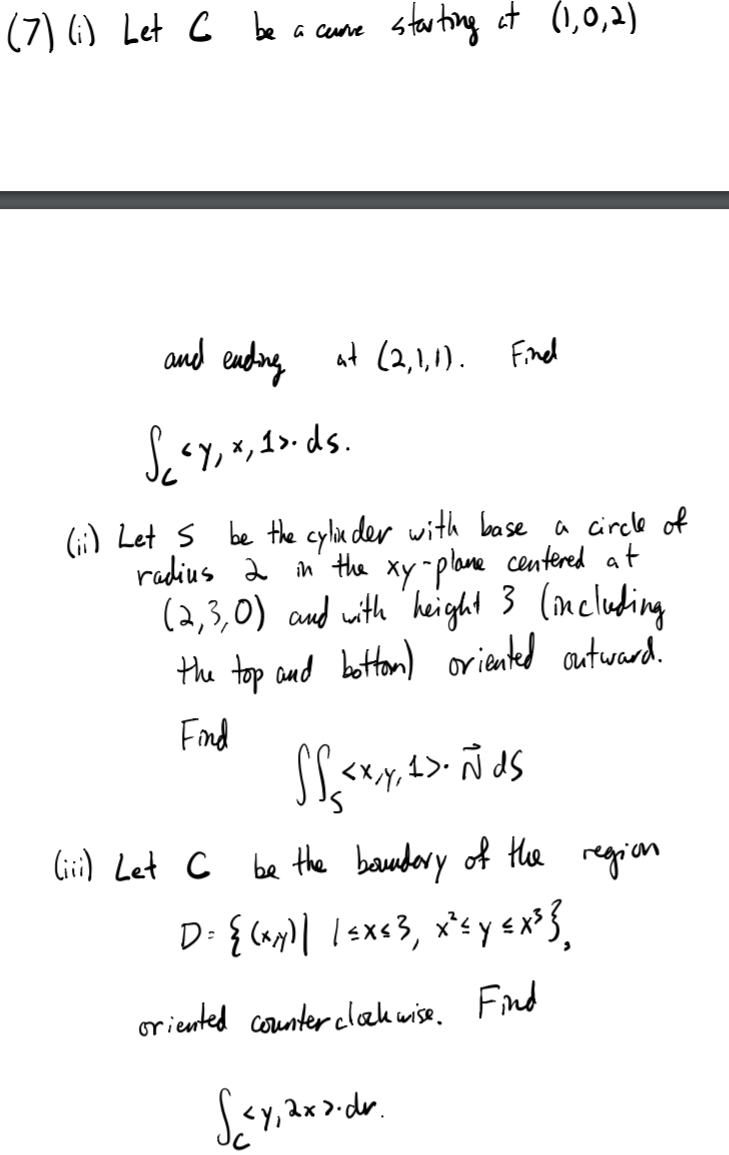 (7) (i) Let C be a curve starting at (1,0,2)
and ending at (2,1,1). Find
∫_C <y, x, 1>· ds.
(ii) Let S be the cylinder with base a circle of
radius 2 in the xy-plane centered at
(2,3,0) and with height 3 (including
the top and bottom) oriented outward.
Find
∬_S <x,y,1>· N⃗ dS
(iii) Let C be the boundary of the region
D = {(x,y)| 1≤x≤3, x²≤y≤x³},
oriented counterclockwise. Find
∫_C <y, 2x>·dr.